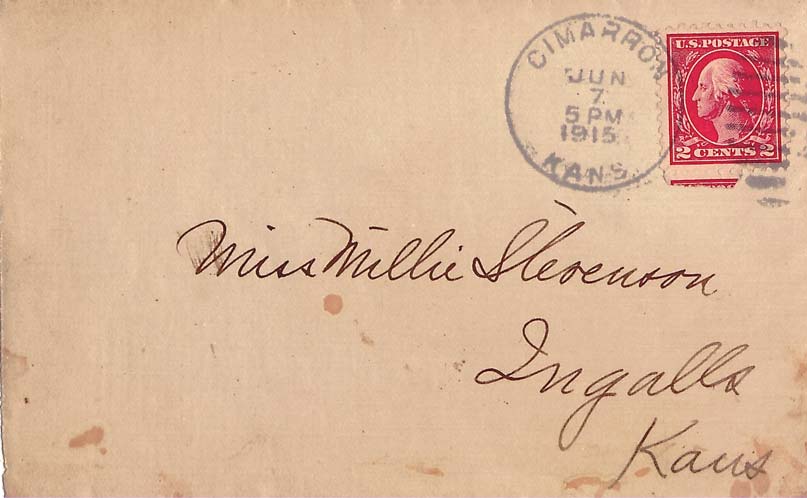 CIMARRON
JUN
7
5 PM
1915
KANS.
U.S. POSTAGE
2 CENTS 2
Miss Millie Stevenson
Ingalls
Kans